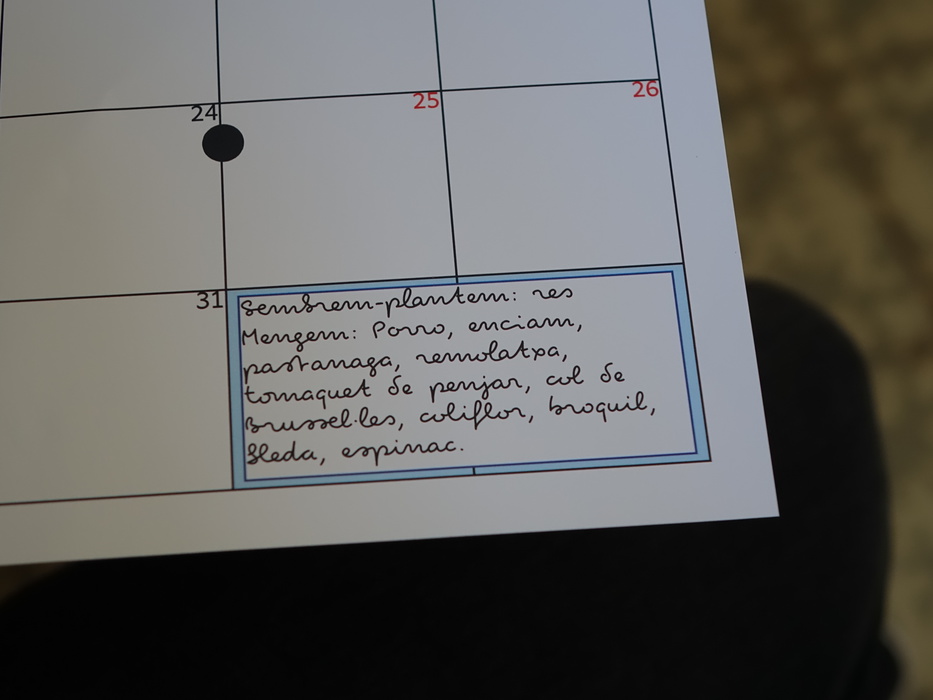 24
25
26
31
Sembrem-plantem: res
Mengem: Porro, enciam,
pastanaga, remolatxa,
tomaquet de penjar, col de
Brussel·les, coliflor, broquil,
bleda, espinac.